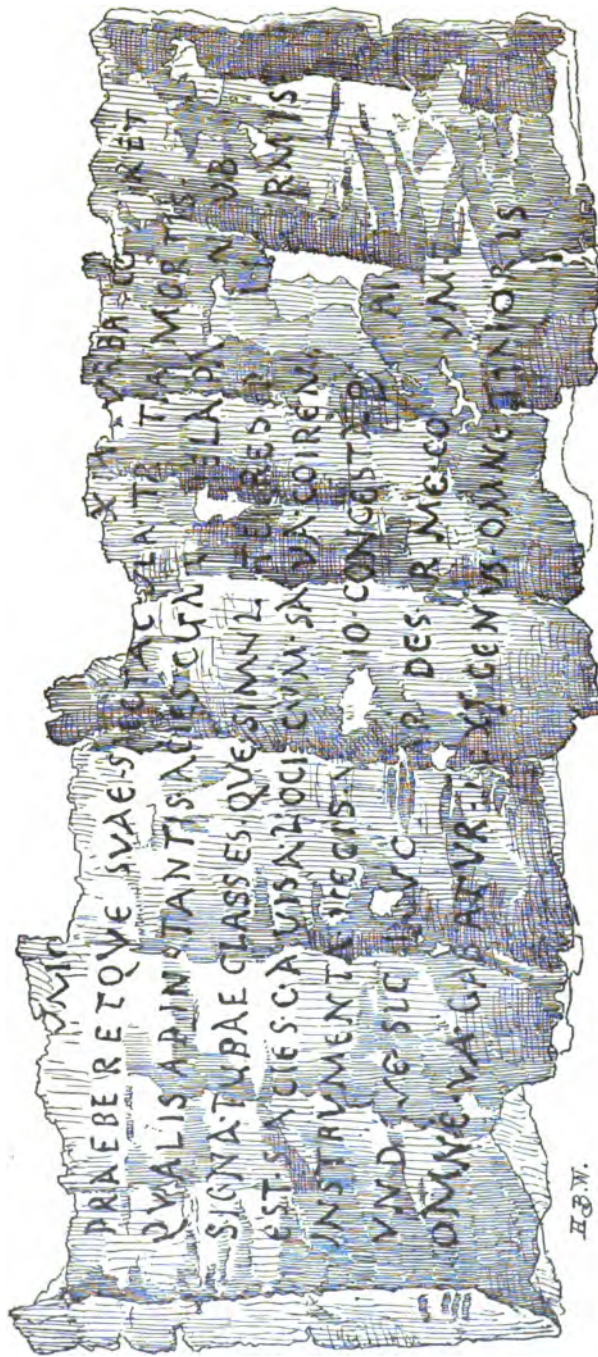 PRAEBERETQVE SVAE·S ECTAC VLA TR TIA MORTIS·
QVALIS AD IN TANTIS ACIES ELA PA N
SIGNA TVBAE CLASSES·QVE SIMVL TERRES RMIS
EST·FACIES·EA VISA LOCI CVM·SA VA·COIREN
INSTRVMENTA NECIS·V IO·CONGESTA·P A
VND VE·SIC ILLVC DE RME·CO VM·
OMNE·VAGABATVR·L TI GENVS·OMNE TIMORIS
H.B.W.